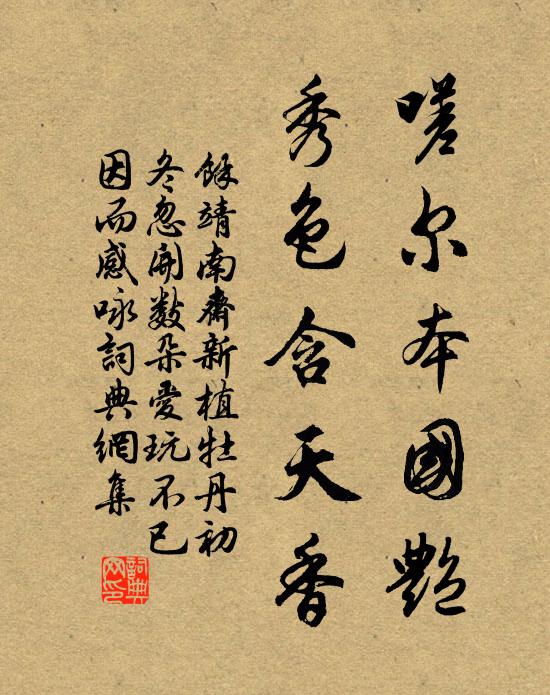 嗟尔本國艷
秀色含天香
餘靖南齋新植牡丹初
冬忽開数朵愛玩不已
因而感咏詞典網集
詞典
网印